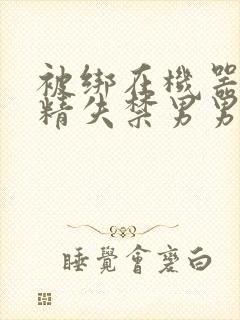 被绑在機器
精失禁男男
睡覺會變白